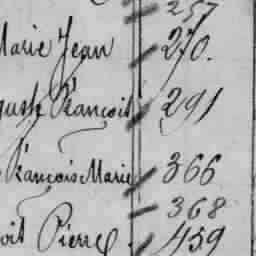 257
Marie Jean 270.
François 291
François Marie 366
368
Pierre. 459